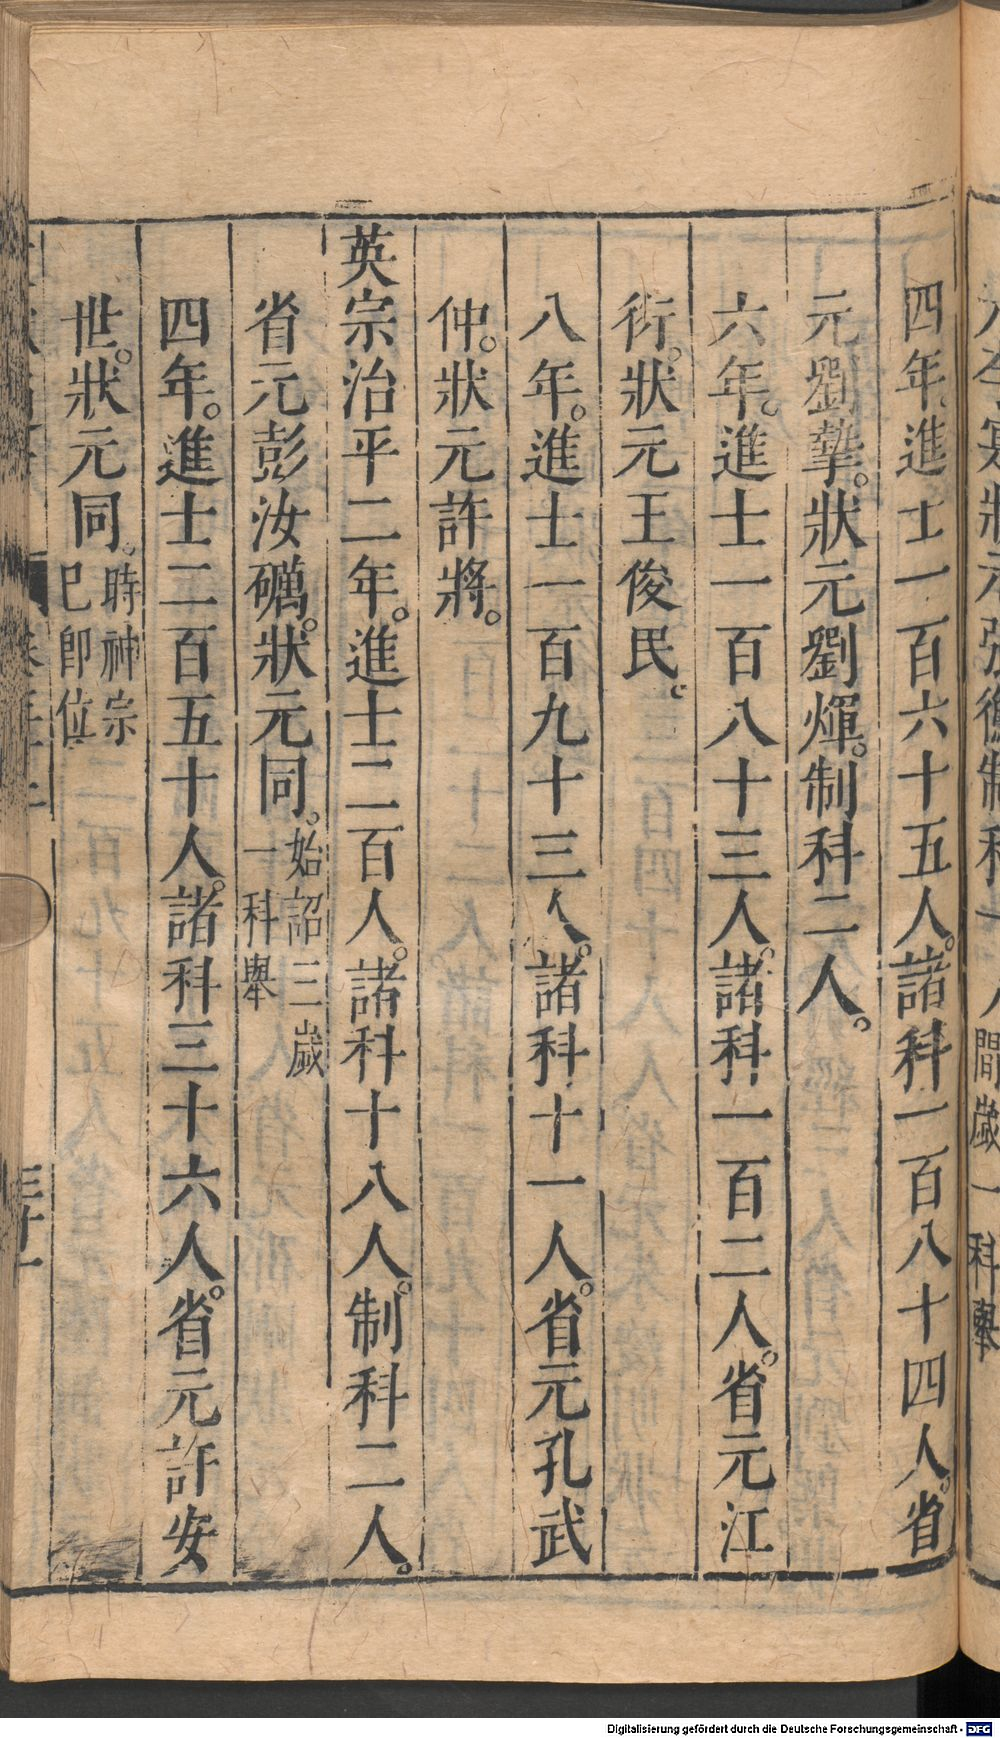 四年。進士一百六十五人。諸科一百八十四人。省
元劉摯。狀元劉煇。制科二人。
六年。進士一百八十三人。諸科一百二人。省元江
衍。狀元王俊民。
八年。進士一百九十三人。諸科十一人。省元孔武
仲。狀元許將。
英宗治平二年。進士二百人。諸科十八人。制科二人。
省元彭汝礪。狀元同。始詔三歲一科舉
四年。進士二百五十人。諸科三十六人。省元許安
世。狀元同。時神宗已即位
三十一
間歲一科舉
Digitalisierung gefördert durch die Deutsche Forschungsgemeinschaft - DFG